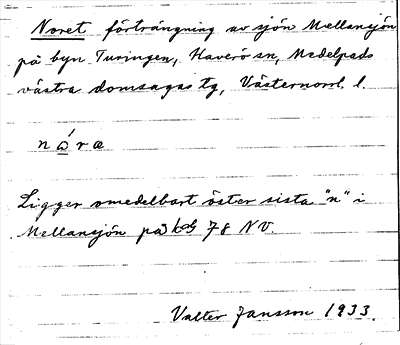 Noret förträngning av sjön Mellansjön
på byn Turingen, Haverö sn, Medelpads
västra domsagas tg, Västernorrl. l.
nώ̲ræ
Ligger omedelbart öster sista "n" i
Mellansjön på kbl 78 NV.
Valter Jansson 1933.